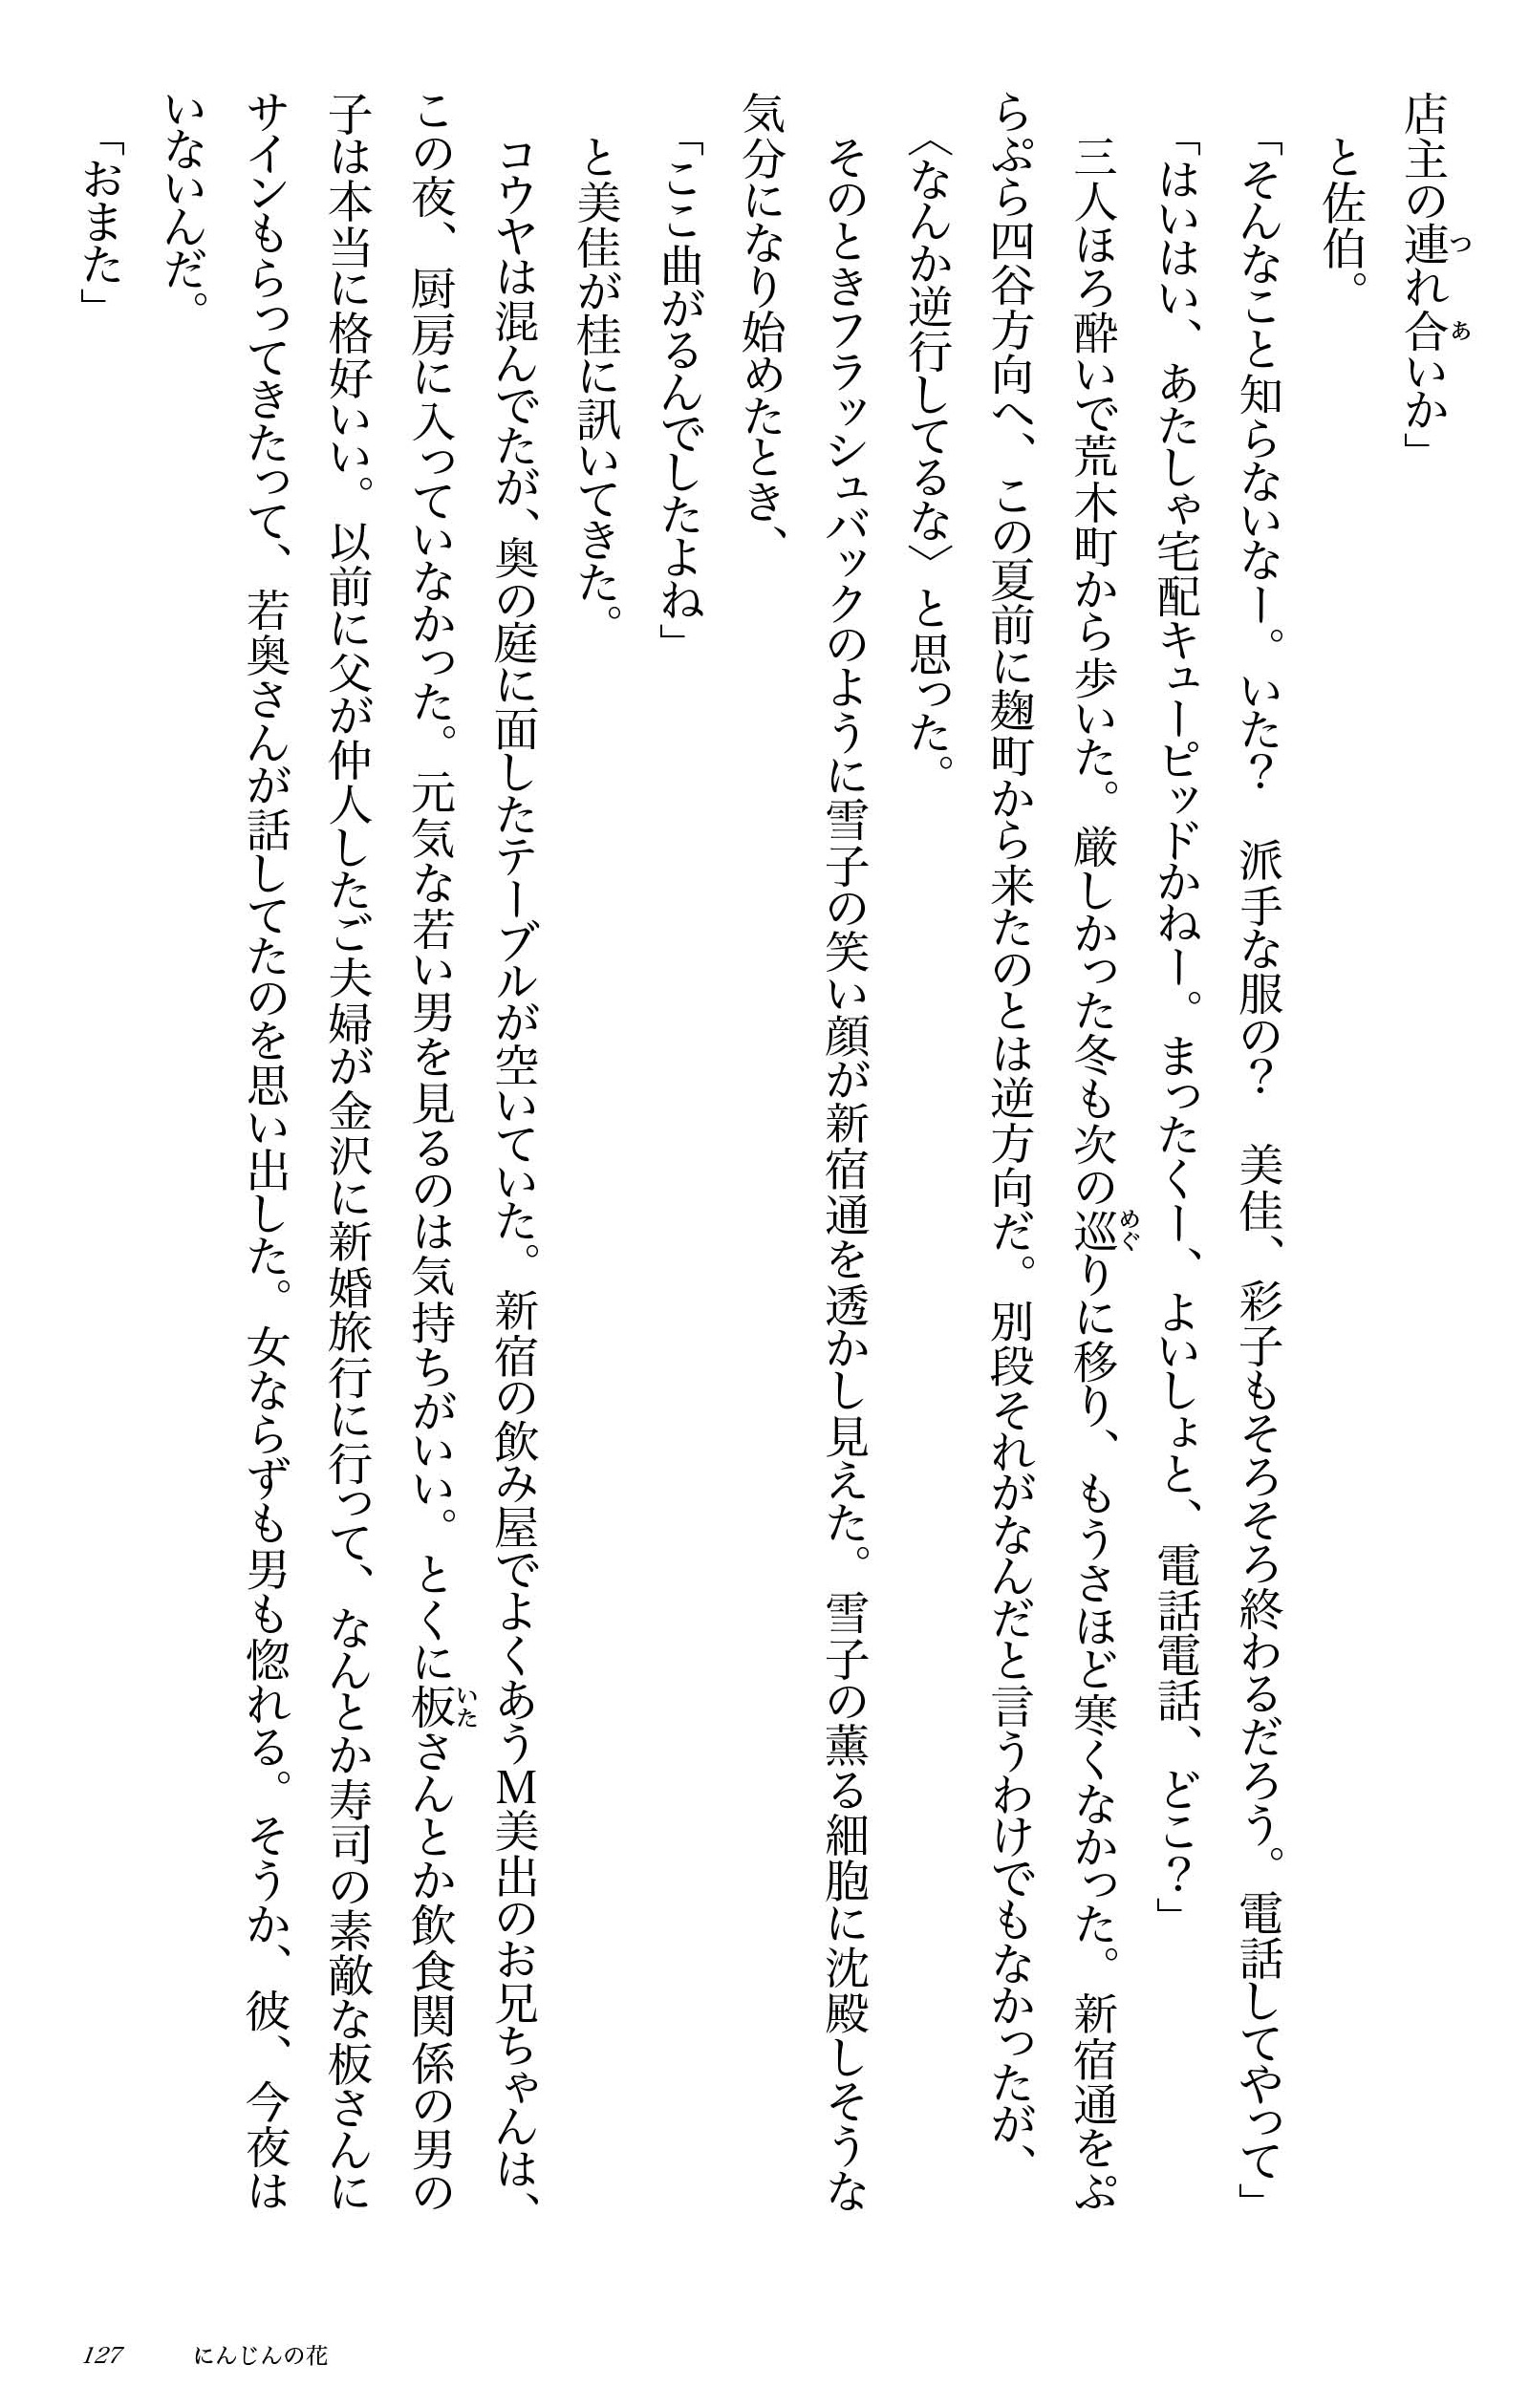 店主の連れ合いか」
と佐伯。
「そんなこと知らないなー。いた？　派手な服の？　美佳、彩子もそろそろ終わるだろう。電話してやって」
「はいはい、あたしゃ宅配キューピッドかねー。まったくー、よいしょと、電話電話、どこ？」
三人ほろ酔いで荒木町から歩いた。厳しかった冬も次の巡りに移り、もうさほど寒くなかった。新宿通をぷ
らぷら四谷方向へ、この夏前に麹町から来たのとは逆方向だ。別段それがなんだと言うわけでもなかったが、
〈なんか逆行してるな〉と思った。
そのときフラッシュバックのように雪子の笑い顔が新宿通を透かし見えた。雪子の薫る細胞に沈殿しそうな
気分になり始めたとき、
「ここ曲がるんでしたよね」
と美佳が桂に訊いてきた。
コウヤは混んでたが、奥の庭に面したテーブルが空いていた。新宿の飲み屋でよくあうＭ美出のお兄ちゃんは、
この夜、厨房に入っていなかった。元気な若い男を見るのは気持ちがいい。とくに板さんとか飲食関係の男の
子は本当に格好いい。以前に父が仲人したご夫婦が金沢に新婚旅行に行って、なんとか寿司の素敵な板さんに
サインもらってきたって、若奥さんが話してたのを思い出した。女ならずも男も惚れる。そうか、彼、今夜は
いないんだ。
「おまた」
127　にんじんの花